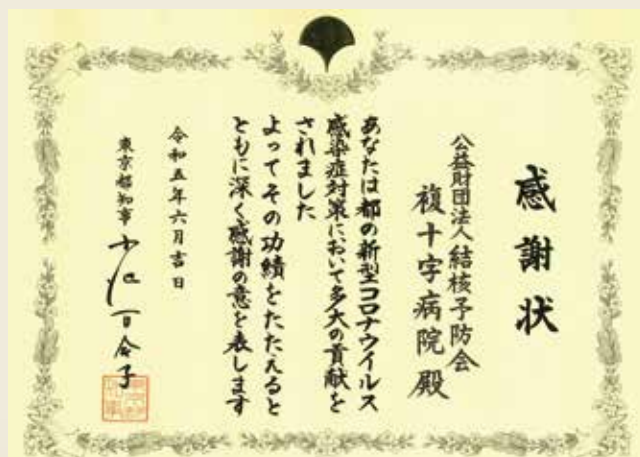 感謝状
公益財団法人結核予防会
複十字病院殿
あなたは都の新型コロナウイルス
感染症対策において多大の貢献を
されました
よってその功績をたたえると
ともに深く感謝の意を表します
令和五年六月吉日
東京都知事 小池百合子